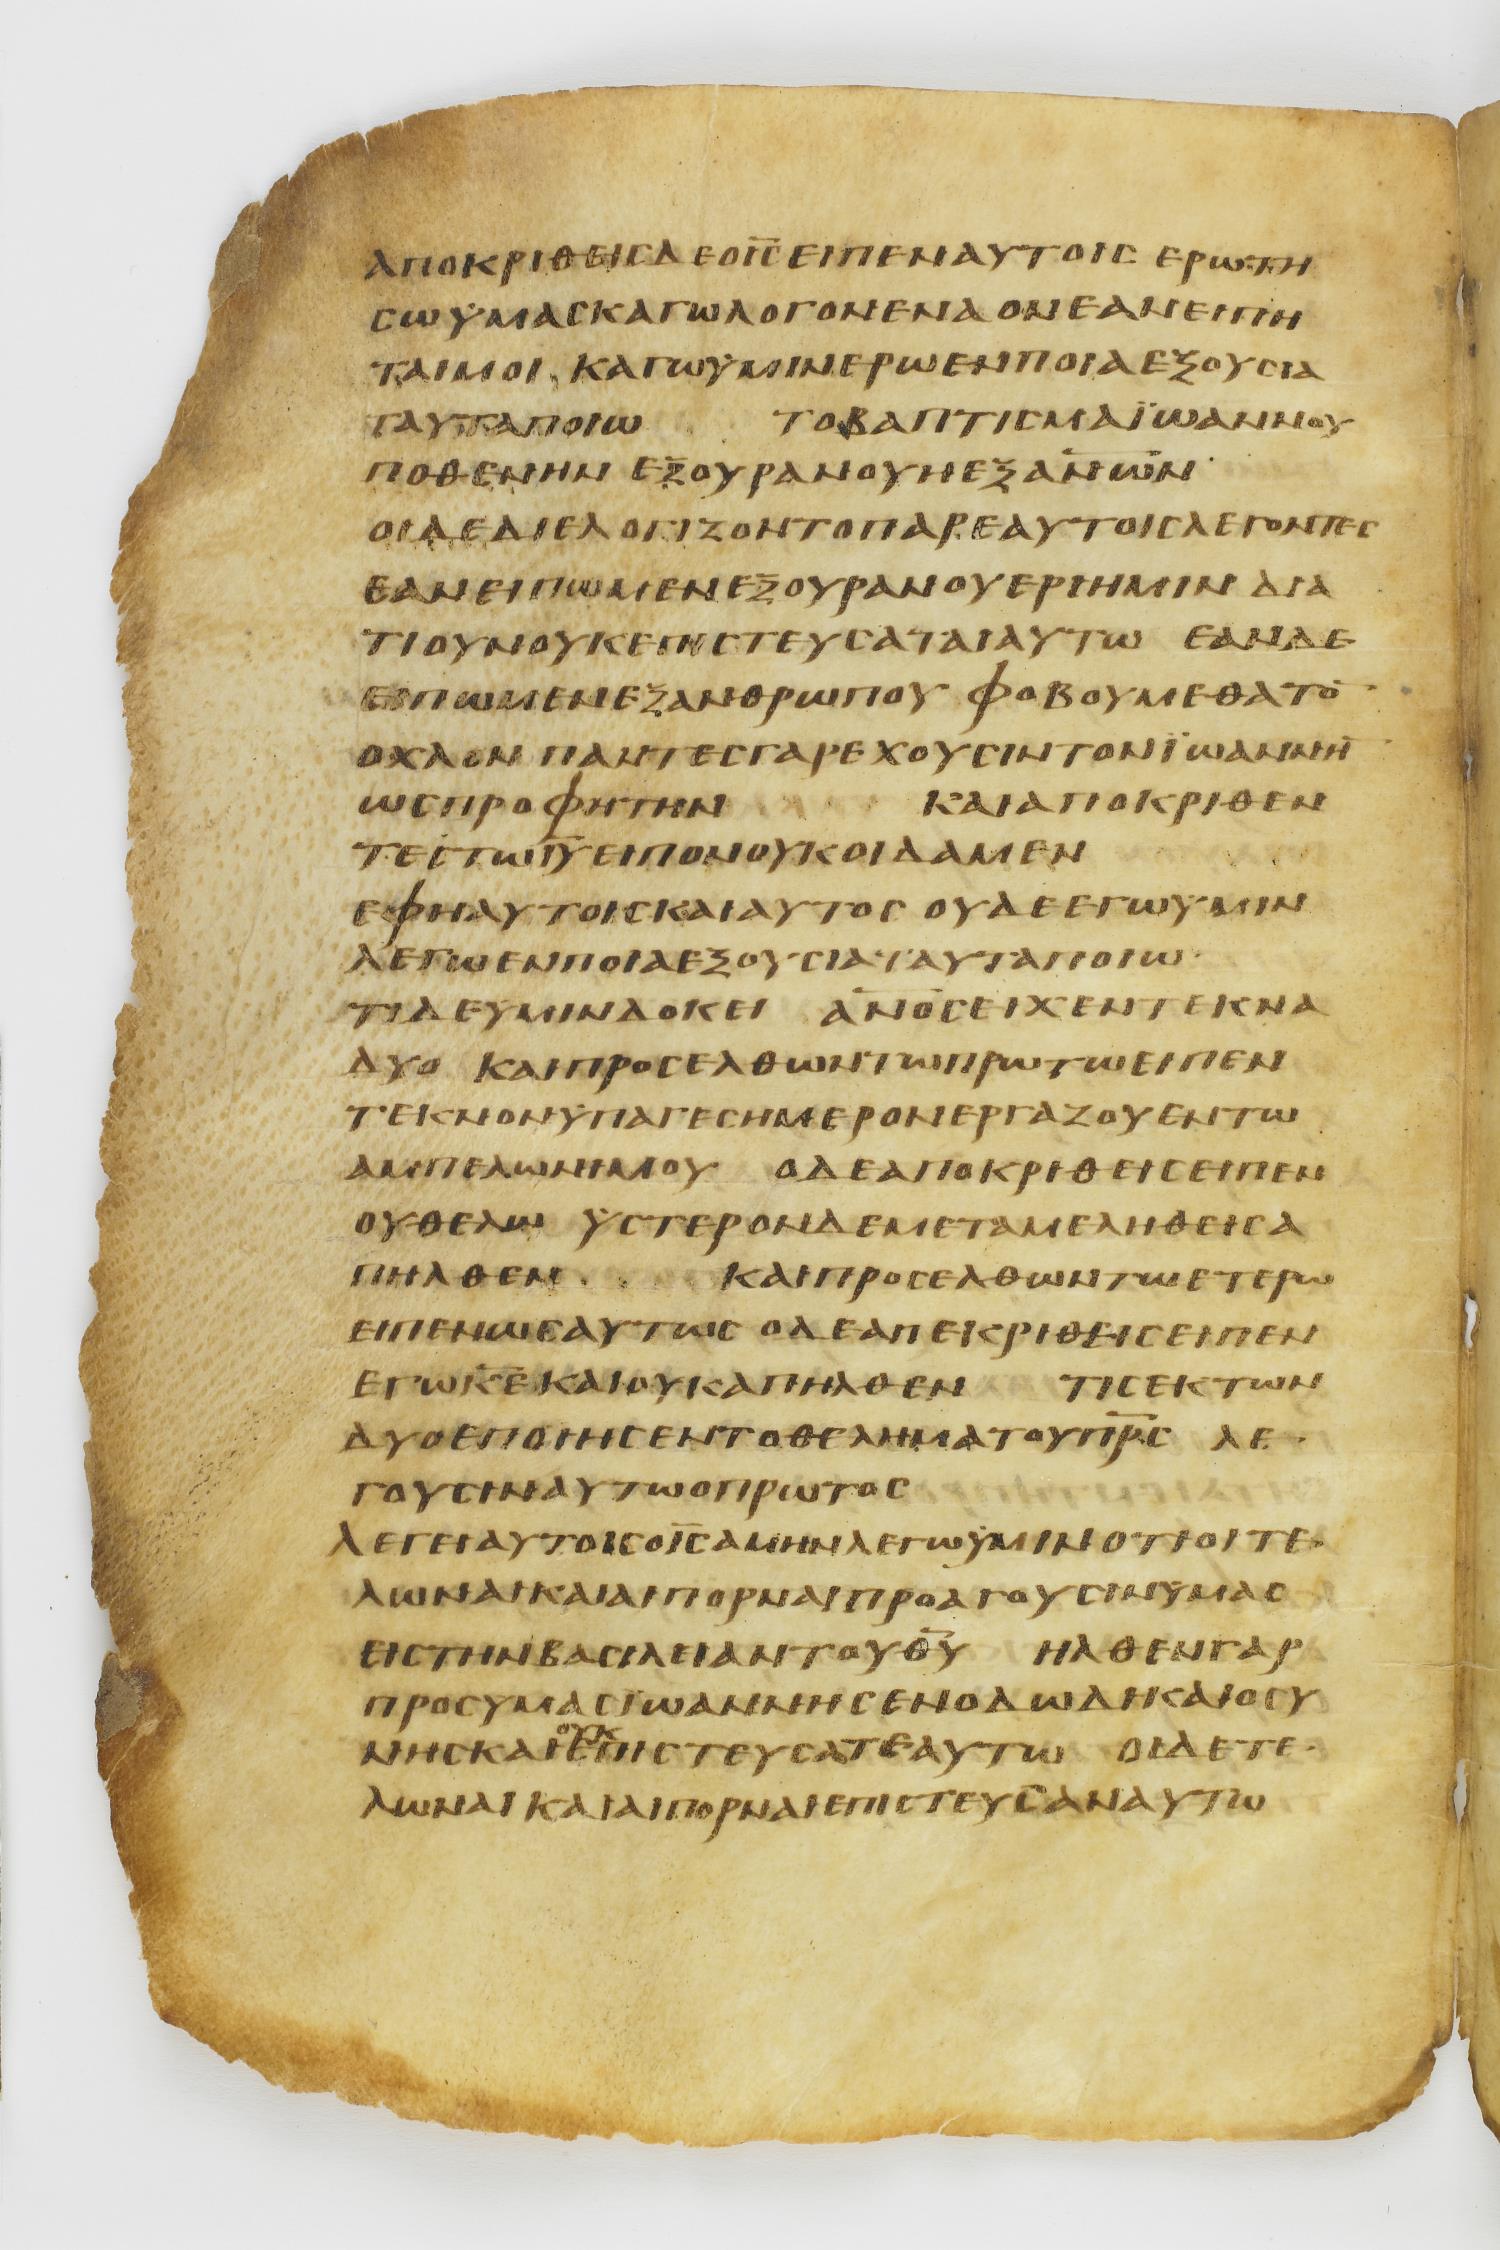 ΑΠΟΚΡΙΘΕΙϹΔΕΟΙ̅Ϲ̅ΕΙΠΕΝΑΥΤΟΙϹ ΕΡΩΤΗ
ϹΩΫΜΑϹΚΑΓΩΛΟΓΟΝΕΝΑΟΝΕΑΝΕΙΠΗ
ΤΑΙΜΟΙ ΚΑΓΩΫΜΙΝΕΡΩΕΝΠΟΙΑΕΞΟΥϹΙΑ
ΤΑΥΤΑΠΟΙΩ ΤΟΒΑΠΤΙϹΜΑΪΩΑΝΝΟΥ
ΠΟΘΕΝΗΝ ΕΞΟΥΡΑΝΟΥΗΕΞΑ̅Ν̅Ω̅Ν̅
ΟΙΔΕΔΙΕΛΟΓΙΖΟΝΤΟΠΑΡΕΑΥΤΟΙϹΛΕΓΟΝΤΕϹ
ΕΑΝΕΙΠΩΜΕΝΕΞΟΥΡΑΝΟΥΕΡΙΗΜΙΝ ΔΙΑ
ΤΙΟΥΝΟΥΚΕΠΙϹΤΕΥϹΑΤΑΙΑΥΤΩ ΕΑΝΔΕ
ΕΙΠΩΜΕΝΕΞΑΝΘΡΩΠΟΥ ΦΟΒΟΥΜΕΘΑΤΟ̅
ΟΧΛΟΝ ΠΑΝΤΕϹΓΑΡΕΧΟΥϹΙΝΤΟΝΪΩΑΝΝΗ̅
ΩϹΠΡΟΦΗΤΗΝ ΚΑΙΑΠΟΚΡΙΘΕΝ
ΤΕϹΤΩΙ̅Υ̅ΕΙΠΟΝΟΥΚΟΙΔΑΜΕΝ
ΕΦΗΑΥΤΟΙϹΚΑΙΑΥΤΟϹ ΟΥΔΕΕΓΩΥΜΙΝ
ΛΕΓΩΕΝΠΟΙΑΕΞΟΥϹΙΑΤΑΥΤΑΠΟΙΩ
ΤΙΔΕΥΜΙΝΔΟΚΕΙ Α̅Ν̅Ο̅Ϲ̅ΕΙΧΕΝΤΕΚΝΑ
ΔΥΟ ΚΑΙΠΡΟϹΕΛΘΩΝΤΩΠΡΩΤΩΕΙΠΕΝ
ΤΕΚΝΟΝΫΠΑΓΕϹΗΜΕΡΟΝΕΡΓΑΖΟΥΕΝΤΩ
ΑΜΠΕΛΩΝΙΜΟΥ ΟΔΕΑΠΟΚΡΙΘΕΙϹΕΙΠΕΝ
ΟΥΘΕΛΩ ΫϹΤΕΡΟΝΔΕΜΕΤΑΜΕΛΗΘΕΙϹΑ
ΠΗΛΘΕΝ ΚΑΙΠΡΟϹΕΛΘΩΝΤΩΕΤΕΡΩ
ΕΙΠΕΝΩϹΑΥΤΩϹ ΟΔΕΑΠΕΚΡΙΘΕΙϹΕΙΠΕΝ
ΕΓΩΚ̅Ε̅ΚΑΙΟΥΚΑΠΗΛΘΕΝ ΤΙϹΕΚΤΩΝ
ΔΥΟΕΠΟΙΗϹΕΝΤΟΘΕΛΗΜΑΤΟΥΠ̅Ρ̅Ϲ̅ ΛΕ
ΓΟΥϹΙΝΑΥΤΩΟΠΡΩΤΟϹ
ΛΕΓΕΙΑΥΤΟΙϹΟΙ̅Ϲ̅ΑΜΗΝΛΕΓΩΫΜΙΝΟΤΙΟΙΤΕ
ΛΩΝΑΙΚΑΙΑΙΠΟΡΝΑΙΠΡΟΑΓΟΥϹΙΝΫΜΑϹ
ΕΙϹΤΗΝΒΑϹΙΛΕΙΑΝΤΟΥΘ̅Υ̅ ΗΛΘΕΝΓΑΡ
ΠΡΟϹΥΜΑϹΪΩΑΝΝΗϹΕΝΟΔΩΔΗΚΑΙΟϹΥ
ΝΗϹΚΑΙΟΥΚΕΠΙϹΤΕΥϹΑΤΕΑΥΤΩ ΟΙΔΕΤΕ
ΛΩΝΑΙΚΑΙΑΙΠΟΡΝΑΙΕΠΙϹΤΕΥϹΑΝΑΥΤΩ